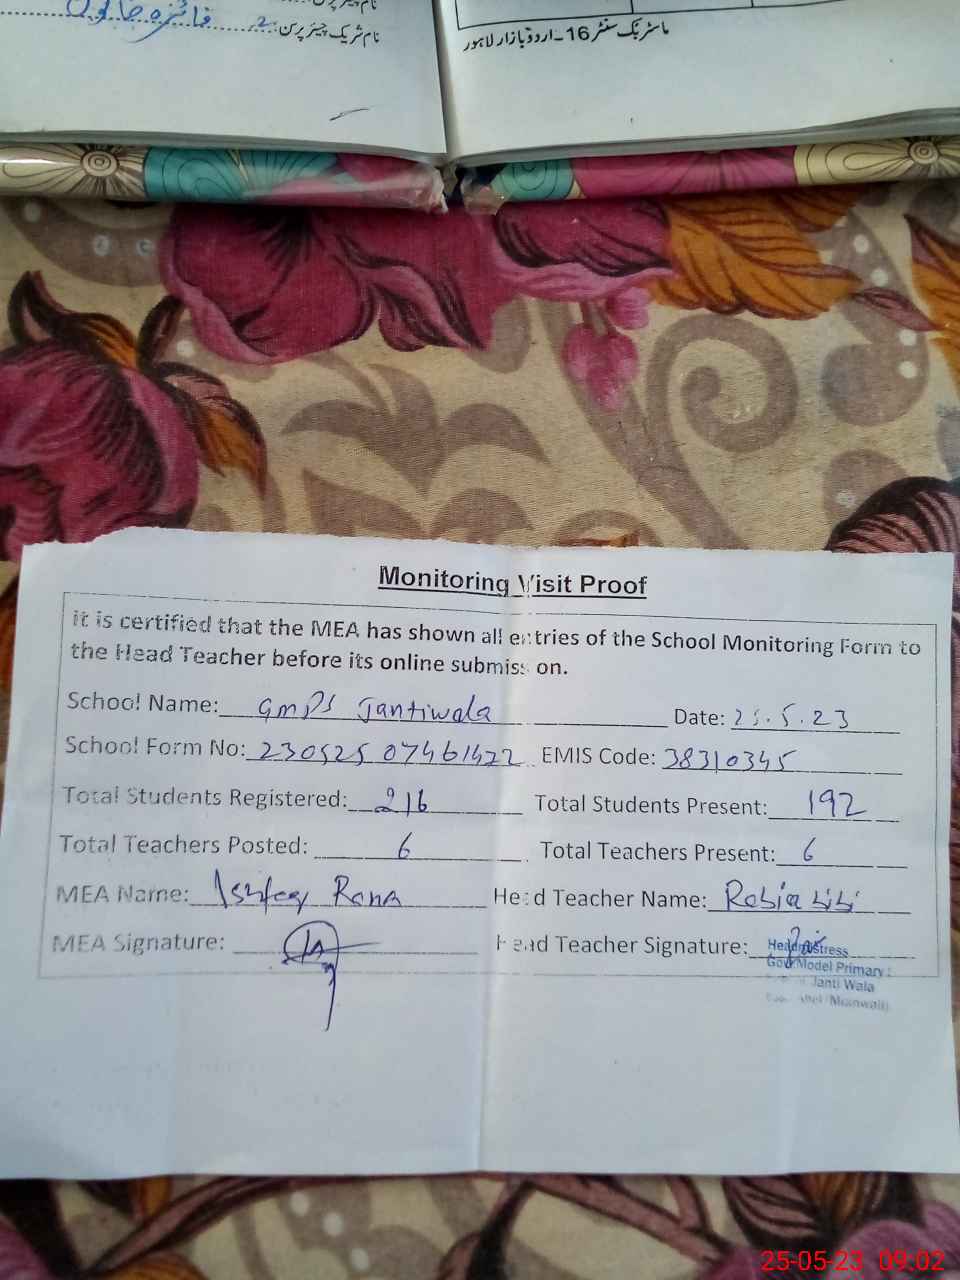 نام شریک چیئر پرسن:
ماسٹر بک سنٹر 16-اردو بازار لاہور
Monitoring Visit Proof
It is certified that the MEA has shown all entries of the School Monitoring Form to
the Head Teacher before its online submission.
School Name: GMPS Jantiwala Date: 25.5.23
School Form No: 23052507461422 EMIS Code: 38310345
Total Students Registered: 216 Total Students Present: 192
Total Teachers Posted: 6 Total Teachers Present: 6
MEA Name: Rana Head Teacher Name: Robia bibi
MEA Signature: Head Teacher Signature:
Headmistress
Govt Model Primary
Janti Wala
Mianwali
25-05-23 09:02